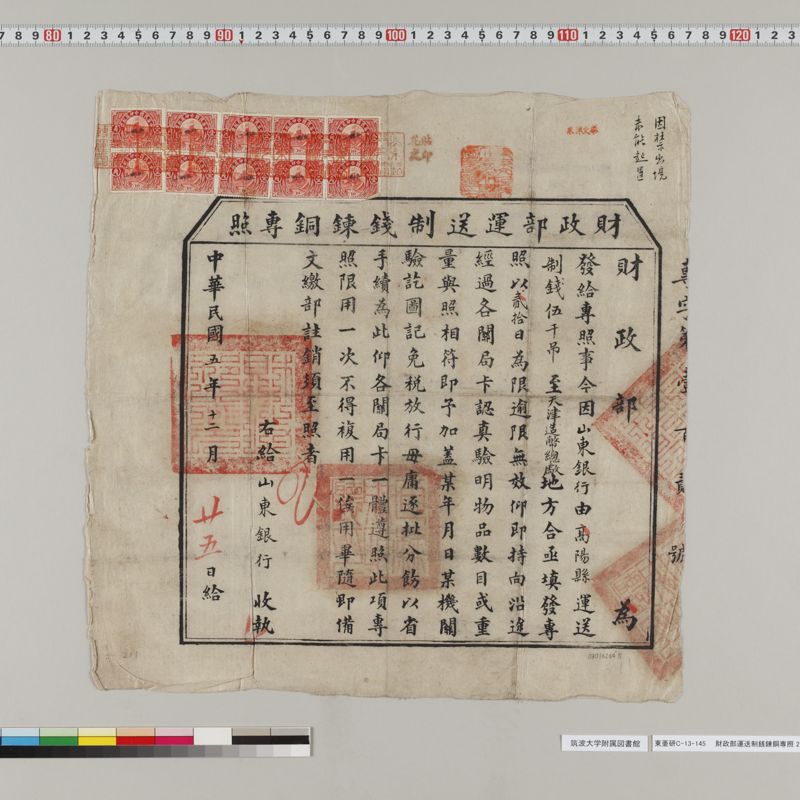 因
未能起運
財政部運送制錢鍊銅專照
財政部 為
發給專照事今因山東銀行由高陽縣運送
制錢伍千吊至天津造幣總廠地方合亟填發專
照以貳拾日為限逾限無效仰即持向沿途
經過各關局卡認真驗明物品數目或重
量與照相符即予加蓋某年月日某機關
驗訖圖記免稅放行毋庸逐批分飭以省
手續為此仰各關局卡一體遵照此項專
照限用一次不得複用一俟用畢隨即備
文繳部註銷須至照者
右給山東銀行收執
中華民國五年十二月廿五日給
筑波大学附属図書館
東亜研C-13-145 財政部運送制銭錬銅専照 2